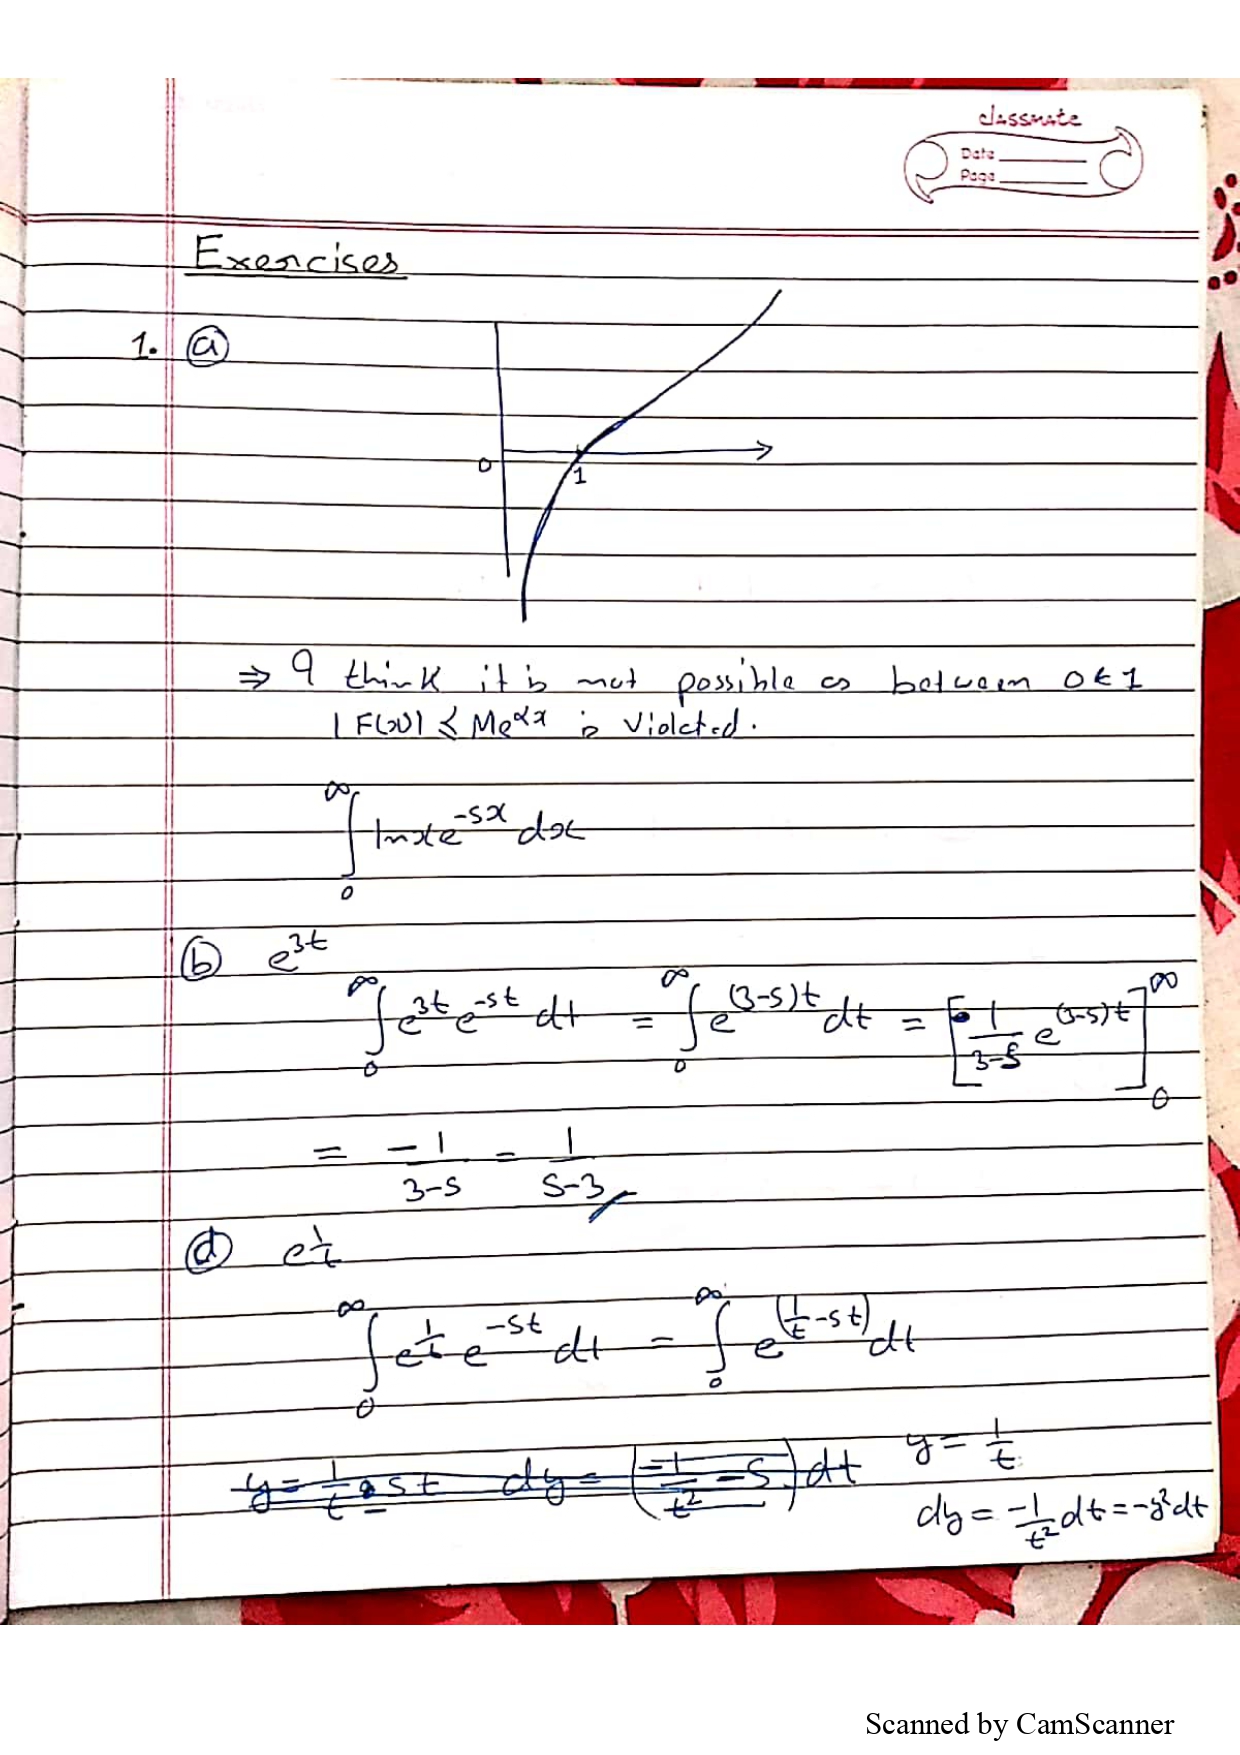 classmate
Date
Page
Exercises
1. (a)
0
1
⇒ I think it is not possible as between 0 & 1
|F(x)| ≤ Me^αx is violated.
∫_0^∞ ln x e^-sx dx
(b) e^3t
∫_0^∞ e^3t e^-st dt = ∫_0^∞ e^(3-s)t dt = [1/(3-s) e^(3-s)t]_0^∞
= -1/(3-s) = 1/(s-3)
(d) e^1/t
∫_0^∞ e^1/t e^-st dt = ∫_0^∞ e^(1/t - st) dt
y = 1/t - st dy = (-1/t² - s) dt y = 1/t
dy = -1/t² dt = -y² dt
Scanned by CamScanner